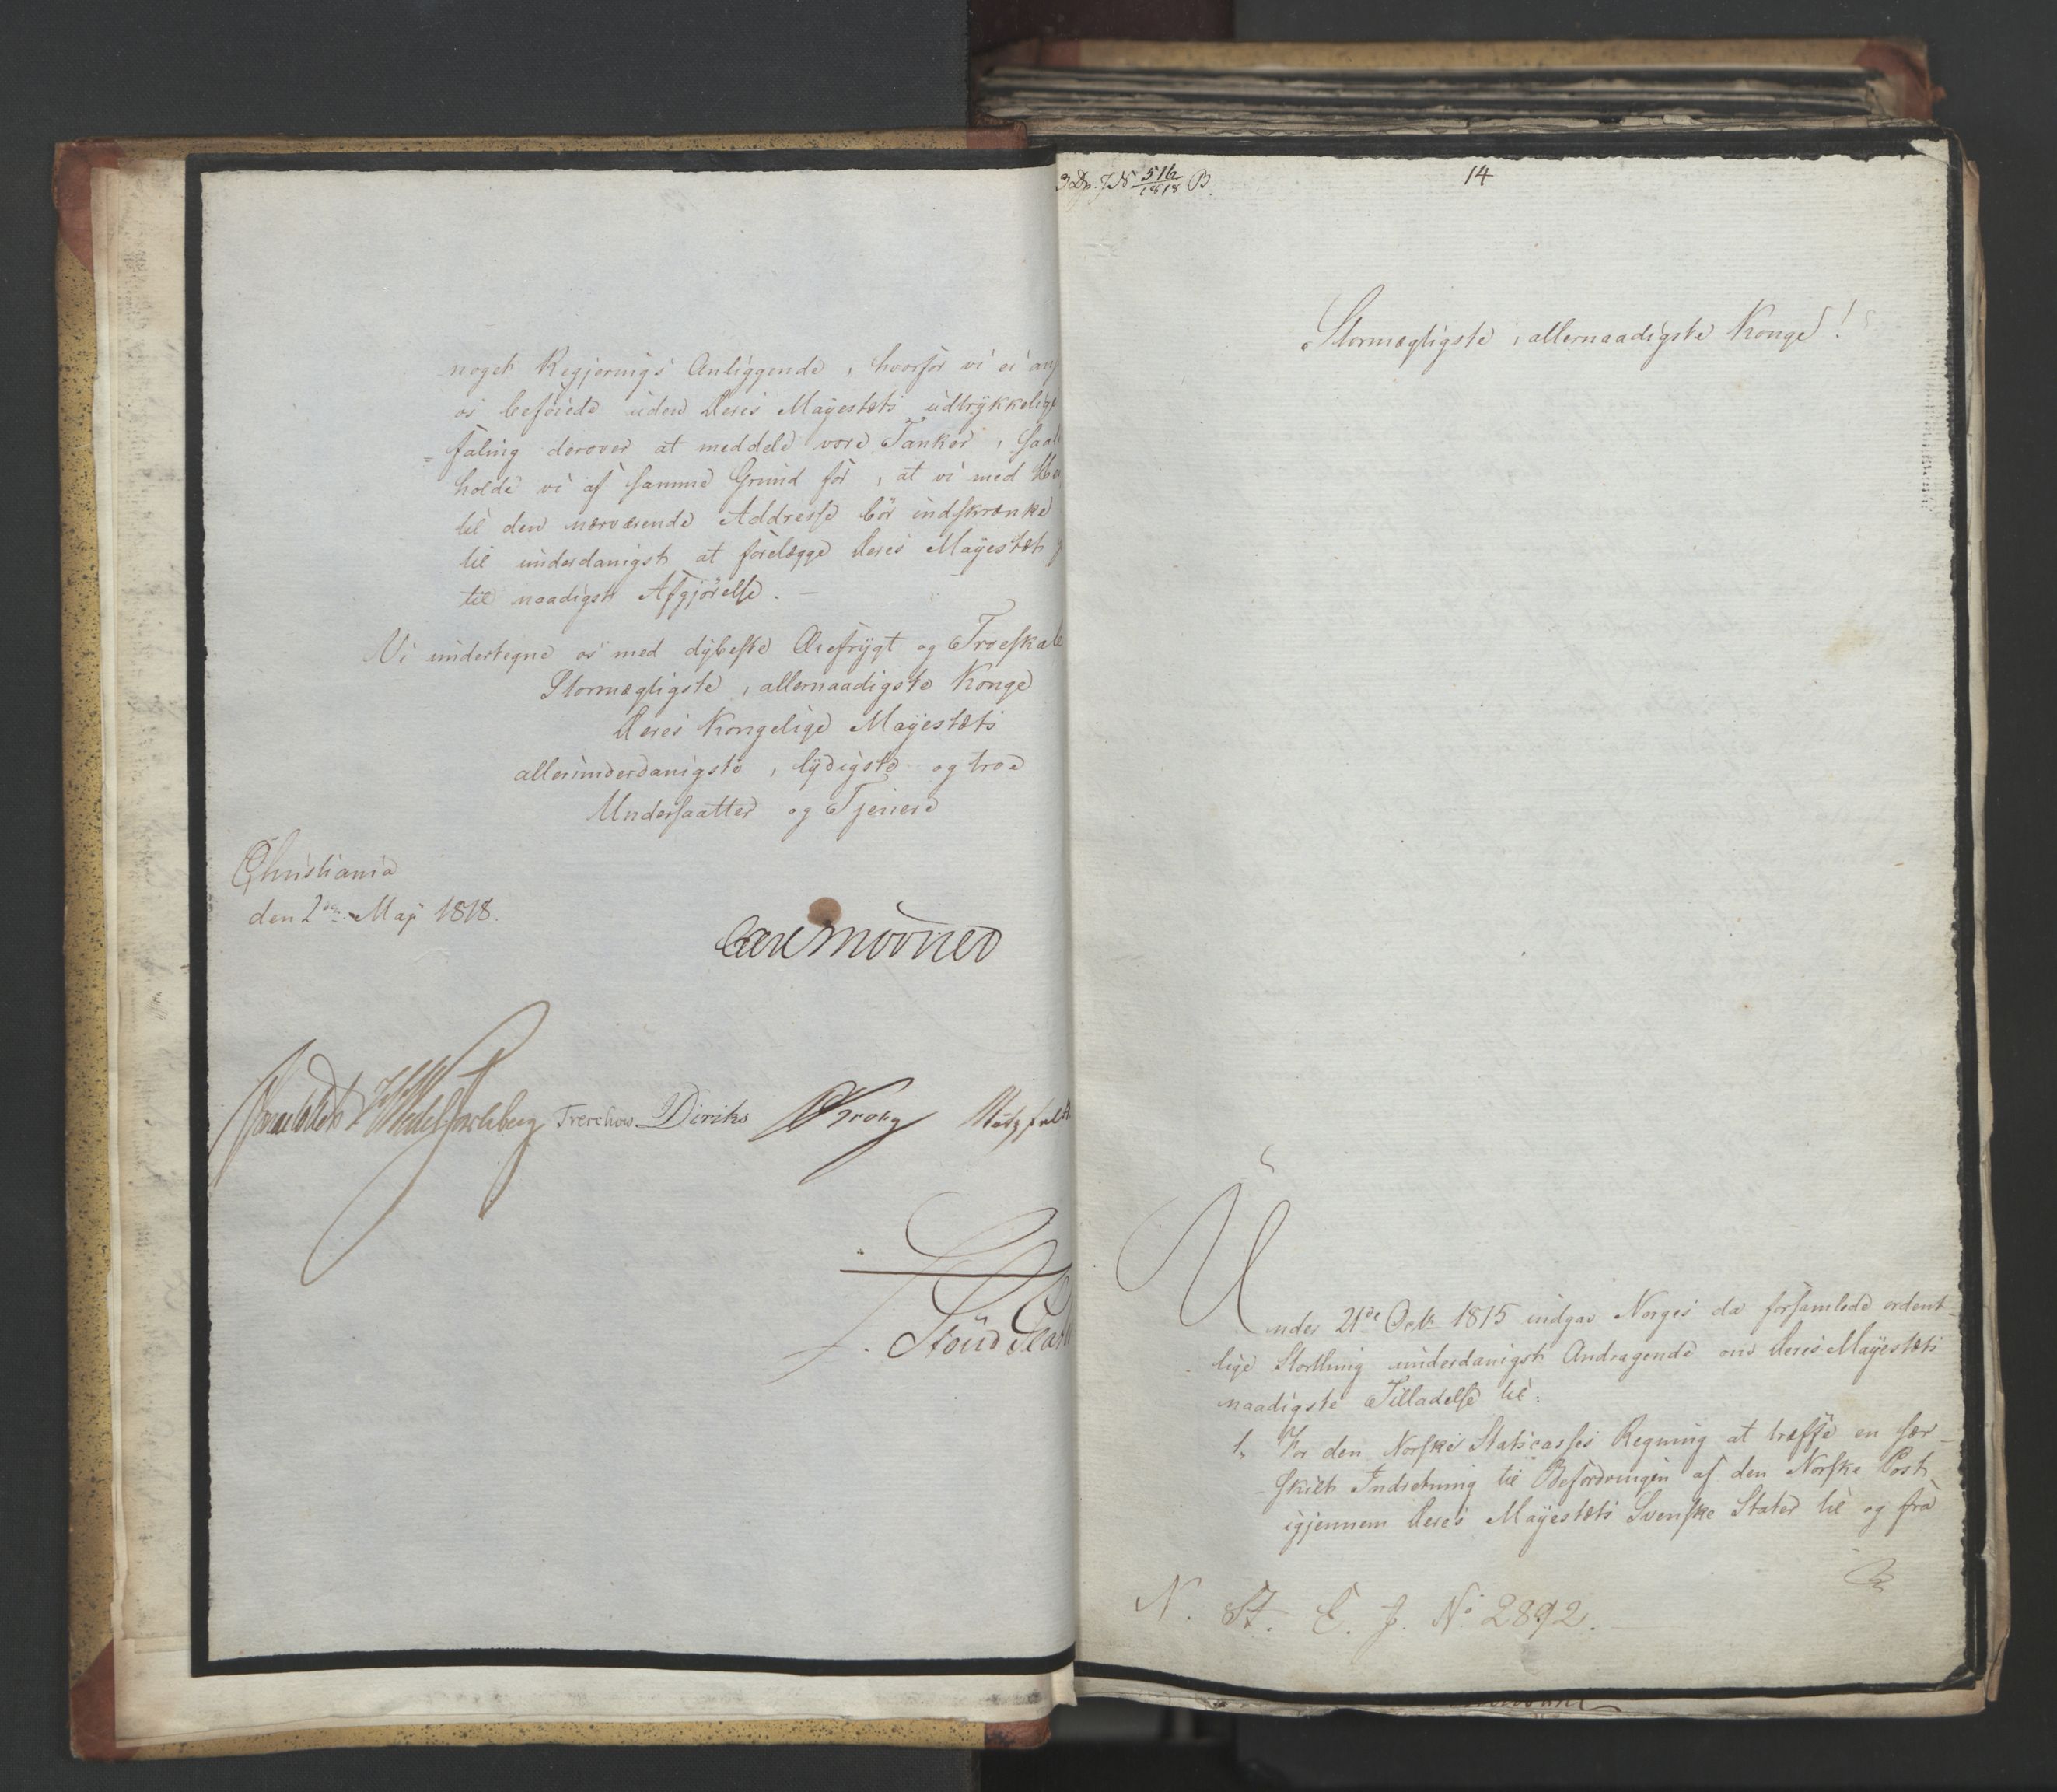 noget Regjerings Anliggende, hvorfor vi ei
os beføiede uden Deres Mayestæts udtrykkelige
faling derover at meddele vore Tanker,
holde vi af samme Grund for, at vi med
til den nærværende Addresse bör indskrænke
til underdanigst at forelægge Deres Mayestæt
til naadigst Afgjörelse. —
Vi undertegne os med dybeste Ærefrygt og Troeskab
Stormægtigste, allernaadigste Konge
Deres Kongelige Mayestæts
allerunderdanigste, lydigste og troe
Undersaatter og Tjenere
Christiania
den 2den May 1818.
Carl Mörner
Sommerhielm Wedel Jarlsberg Treschow Diriks Krohg Motzfeldt
3 Dp. J N 516/1818 B.
14
Stormægtigste, allernaadigste Konge!
Under 21de Octr 1815 indgav Norges da forsamlede ordent-
lige Storthing underdanigst Andragende om Deres Mayestæts
naadigste Tilladelse til:
1, For den Norske Statscasses Regning at træffe en sær-
skilt Indretning til Befordringen af den Norske Post
igjennem Deres Mayestæts Svenske Stater til og fra
N. St. E. J. No 2892.